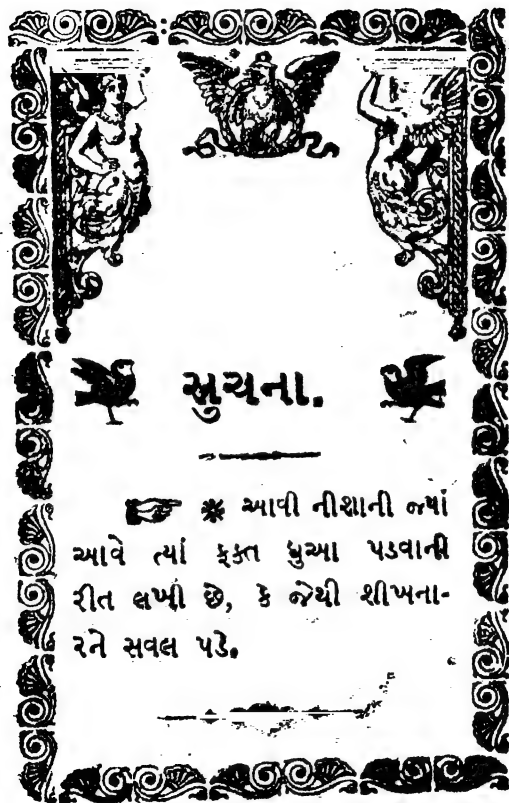 સુચના.
☞ * આવી નીશાની જ્યાં
આવે ત્યાં ફક્ત ધ્રુઆ પડવાની
રીત લખી છે, કે જેથી શીખના-
રને સવલ પડે.